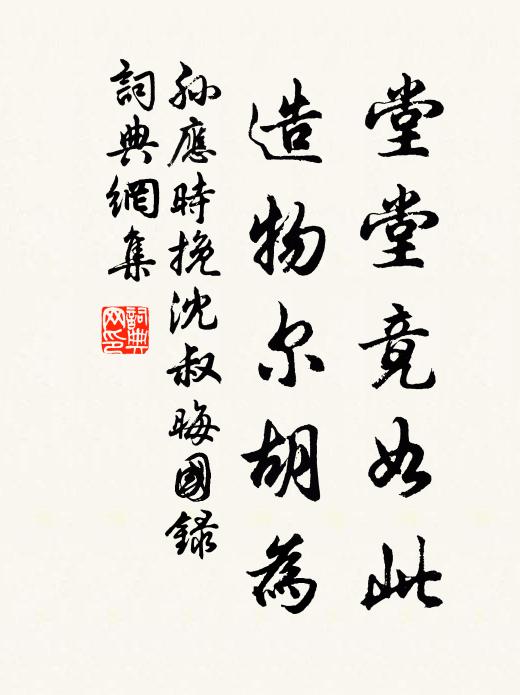 堂堂竟如此
造物尔胡為
孫應時挽沈叔晦國録
詞典網集
詞典網印